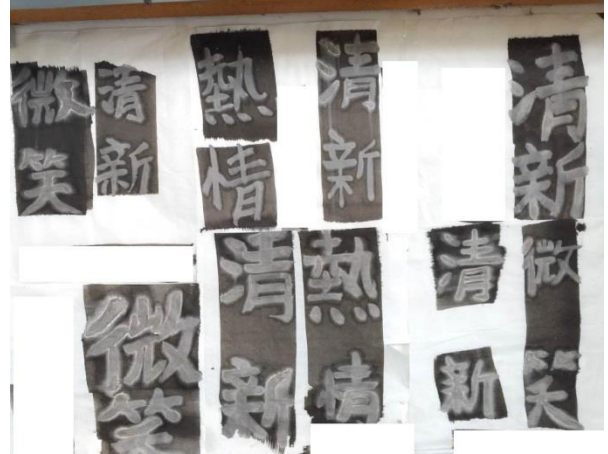 微笑
清新
熱情
清新
清新
微笑
清新
熱情
清新
微笑